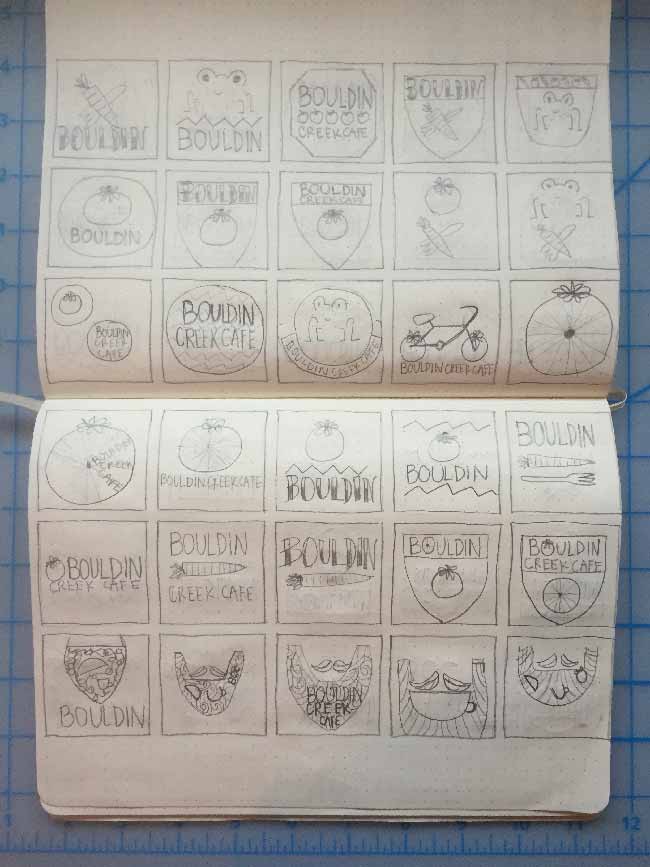 BOULDIN
BOULDIN
BOULDIN
CREEK CAFE
BOULDIN
BOULDIN
BOULDIN
BOULDIN
CREEK CAFE
BOULDIN
CREEK
CAFE
BOULDIN
CREEK CAFE
BOULDIN CREEK CAFE
BOULDIN CREEK CAFE
BOULDIN
CREEK
CAFE
BOULDIN CREEK CAFE
BOULDIN
BOULDIN
BOULDIN
BOULDIN
CREEK CAFE
BOULDIN
CREEK CAFE
BOULDIN
BOULDIN
BOULDIN
CREEK CAFE
BOULDIN
BOULDIN
CREEK
CAFE
12